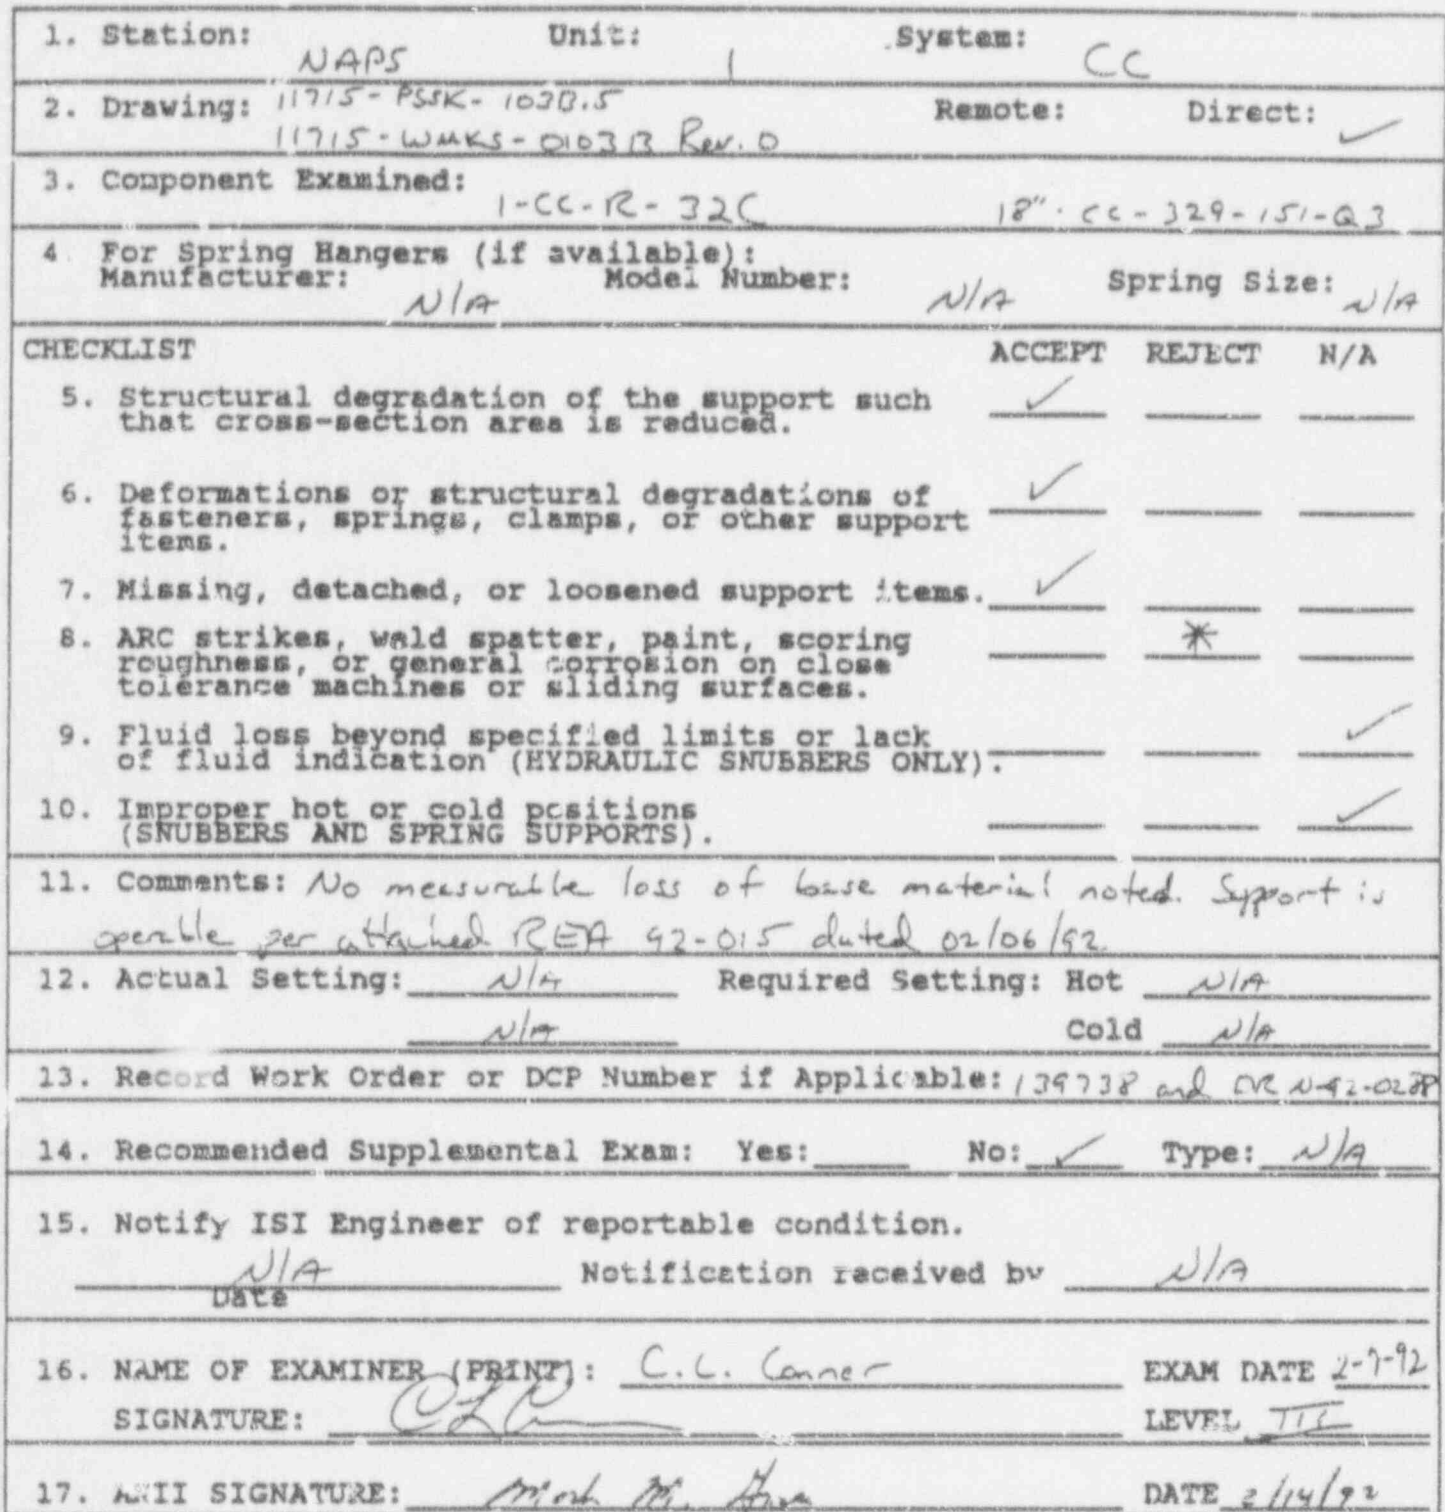 1. Station: NAPS Unit: 1 System: CC
2. Drawing: 11715-PSSK-103B.5 Remote: Direct: ✓
11715-WMKS-0103B Rev. 0
3. Component Examined:
1-CC-R-32C 18"-CC-329-151-Q3
4 For Spring Hangers (if available):
Manufacturer: N/A Model Number: N/A Spring Size: N/A
CHECKLIST ACCEPT REJECT N/A
5. Structural degradation of the support such ✓
that cross-section area is reduced.
6. Deformations or structural degradations of ✓
fasteners, springs, clamps, or other support
items.
7. Missing, detached, or loosened support items. ✓
8. ARC strikes, weld spatter, paint, scoring *
roughness, or general corrosion on close
tolerance machines or sliding surfaces.
9. Fluid loss beyond specified limits or lack ✓
of fluid indication (HYDRAULIC SNUBBERS ONLY).
10. Improper hot or cold positions ✓
(SNUBBERS AND SPRING SUPPORTS).
11. Comments: No measurable loss of base material noted. Support is
operable per attached REA 92-015 dated 02/06/92.
12. Actual Setting: N/A Required Setting: Hot N/A
N/A Cold N/A
13. Record Work Order or DCP Number if Applicable: 139738 and N-92-0238
14. Recommended Supplemental Exam: Yes: No: ✓ Type: N/A
15. Notify ISI Engineer of reportable condition.
N/A Notification received by N/A
Date
16. NAME OF EXAMINER (PRINT): C.L. Conner EXAM DATE 2-7-92
SIGNATURE: LEVEL III
17. ANII SIGNATURE: Mark M. DATE 2/14/92